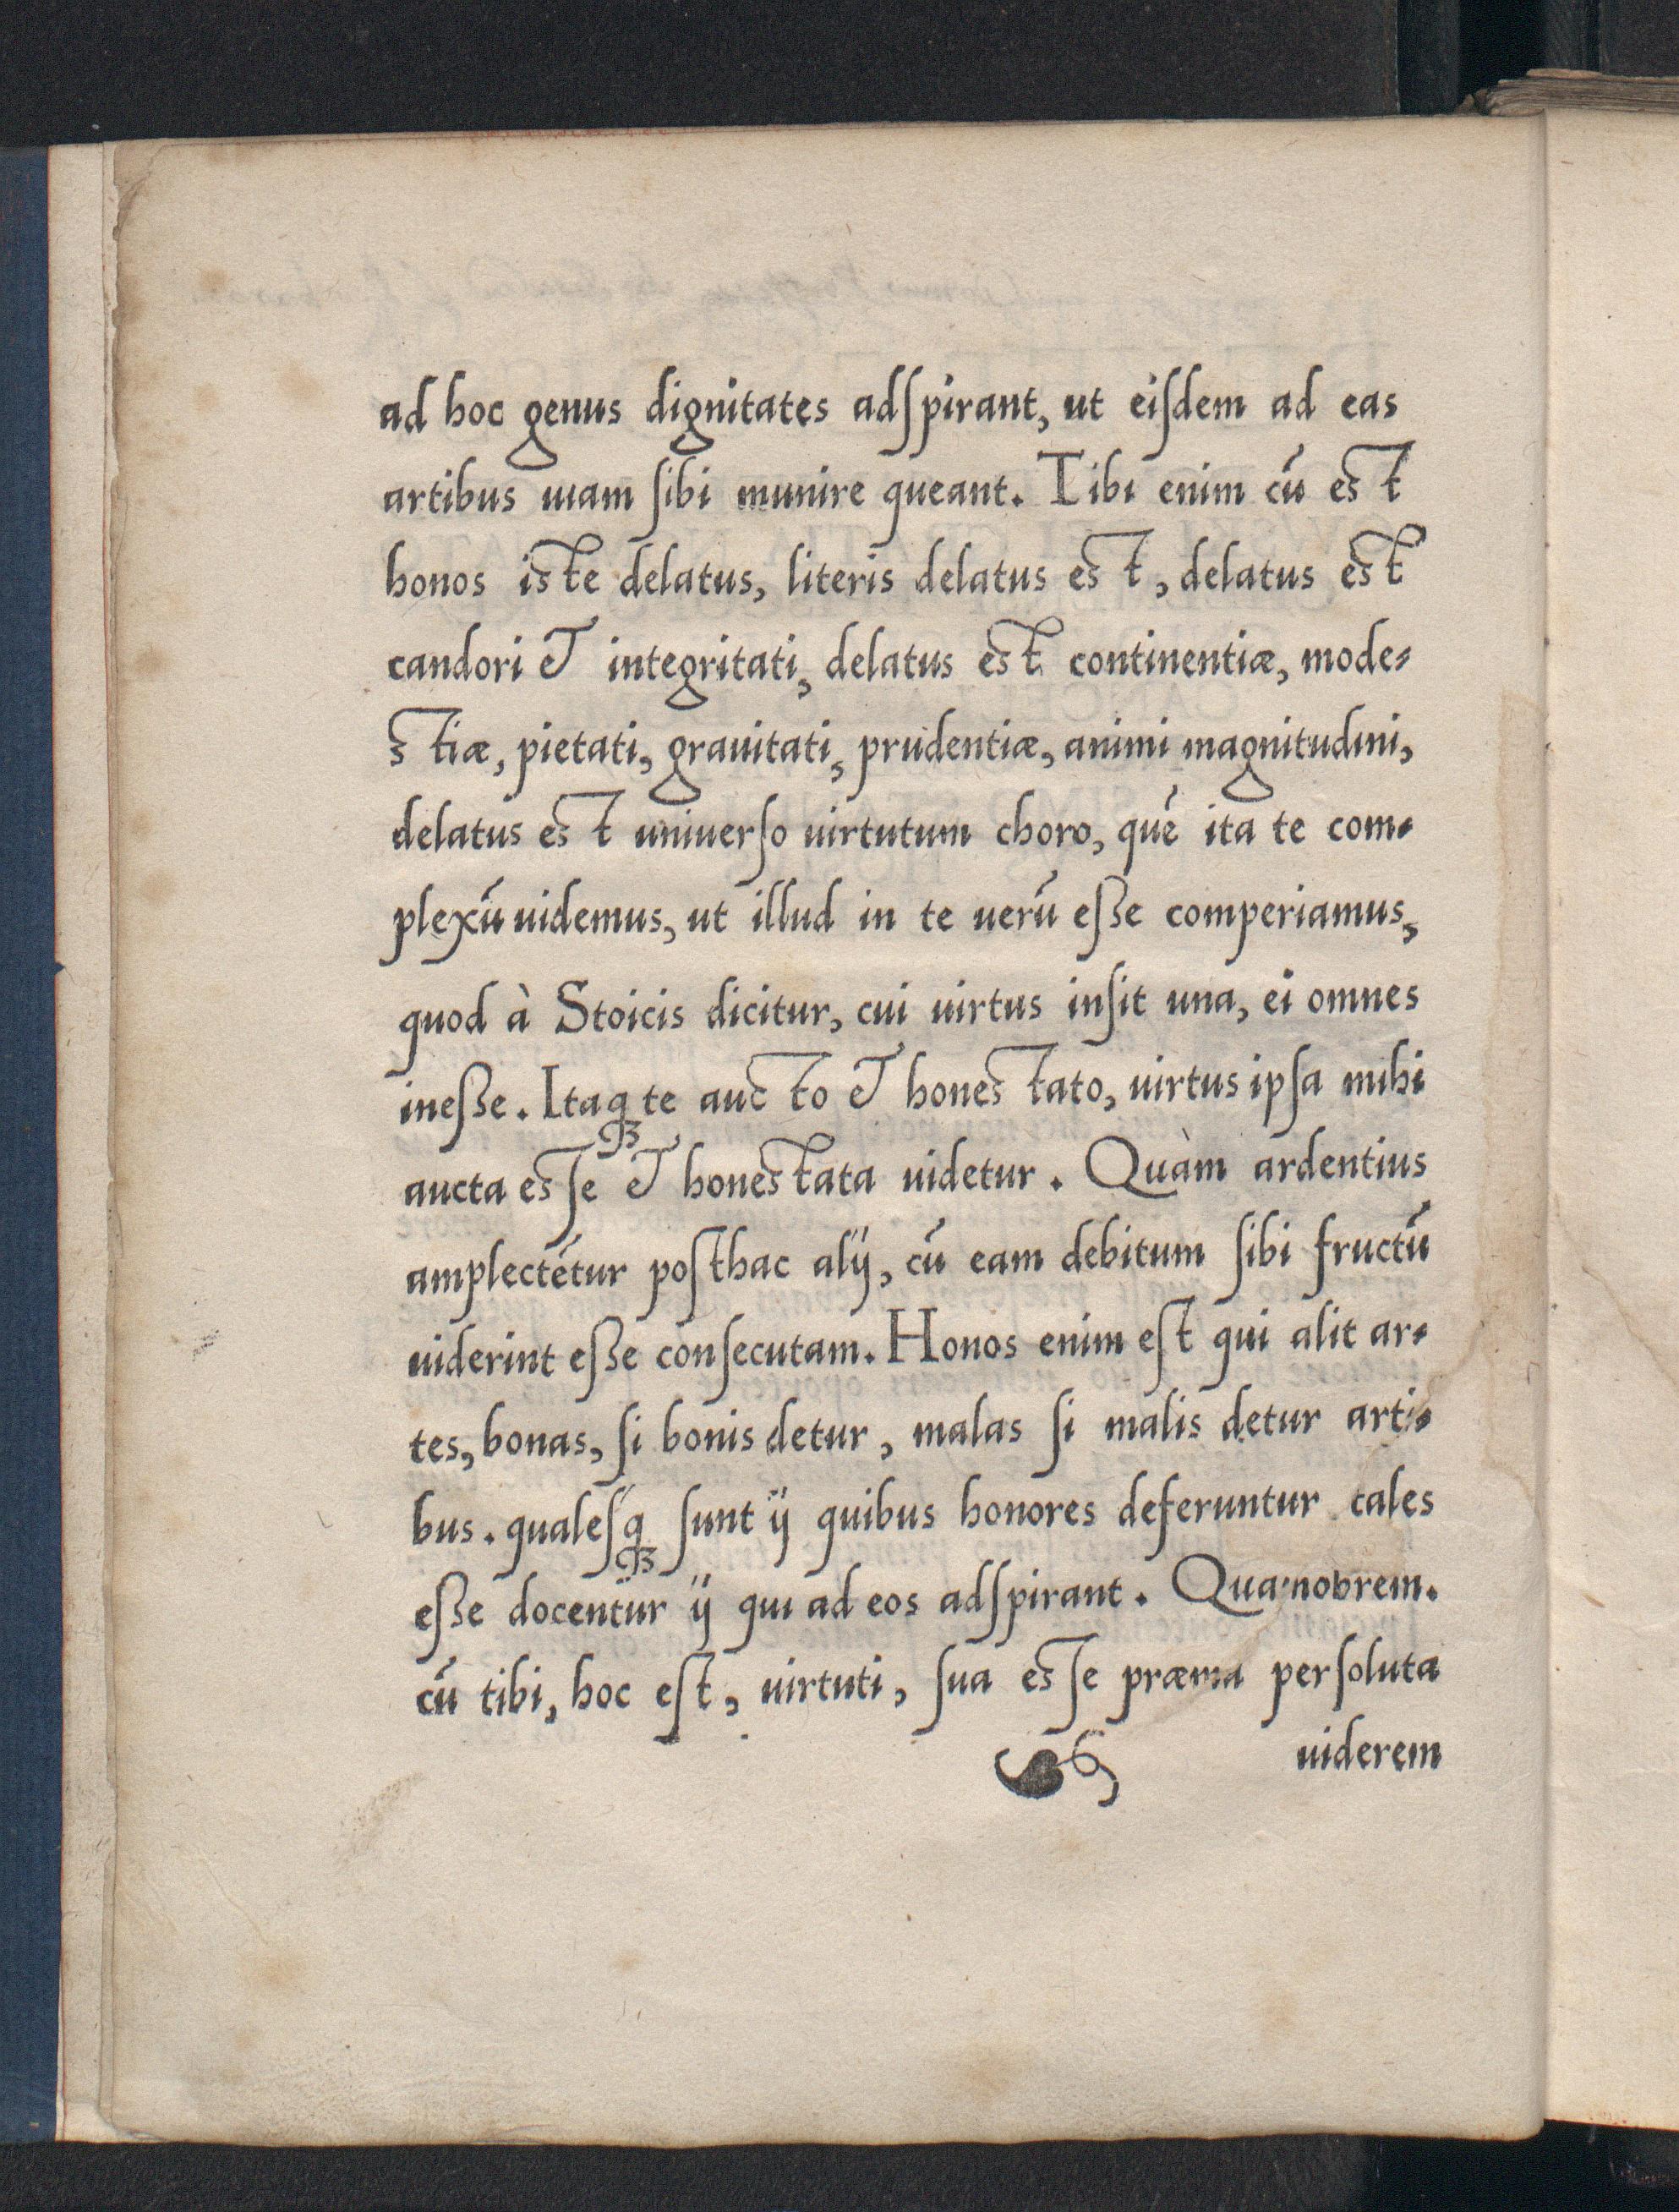 ad hoc genus dignitates adſpirant, ut eiſdem ad eas
artibus uıam ſibi munire queant. Tibi enim cū est
honos iste delatus, literis delatus est, delatus est
candori & integritati, delatus est continentiæ, mode-
stiæ, pietati, grauitati, prudentiæ, animi magnitudini,
delatus est uniuerſo uirtutum choro, quē ita te com-
plexū uidemus, ut illud in te uerū eſſe comperiamus,
quod à Stoicis dicitur, cui uirtus inſit una, ei omnes
ineſſe. Itaqȝ te aucto & honestato, uirtus ipſa mihi
aucta esſe & honestata uidetur. Quàm ardentius
amplectētur poſthac alij, cū eam debitum ſibi fructū
uiderint eſſe conſecutam. Honos enim eſt qui alit ar-
tes, bonas, ſi bonis detur, malas ſi malis detur arti-
bus. qualeſqȝ ſunt ij quibus honores deferuntur tales
eſſe docentur ij qui ad eos adſpirant. Quamobrem.
cū tibi, hoc eſt, uirtuti, ſua esſe præmia perſoluta
uiderem